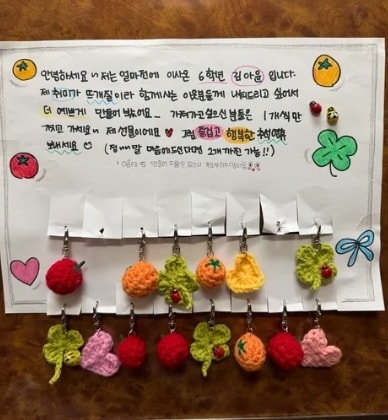 안녕하세요~ 저는 얼마전에 이사온 6학년 김아윤 입니다.
제 취미가 뜨개질이라 함께사는 이웃분들께 나눠드리고 싶어서
더 예쁘게 만들어 봤어요... 가져가고 싶으신 분들은 1개씩만
가져 가세요~ 제 선물이에요 그럼 즐겁고 행복한 추석연휴
보내세요 (정~~말 마음에드신다면 2개까진 가능!!)